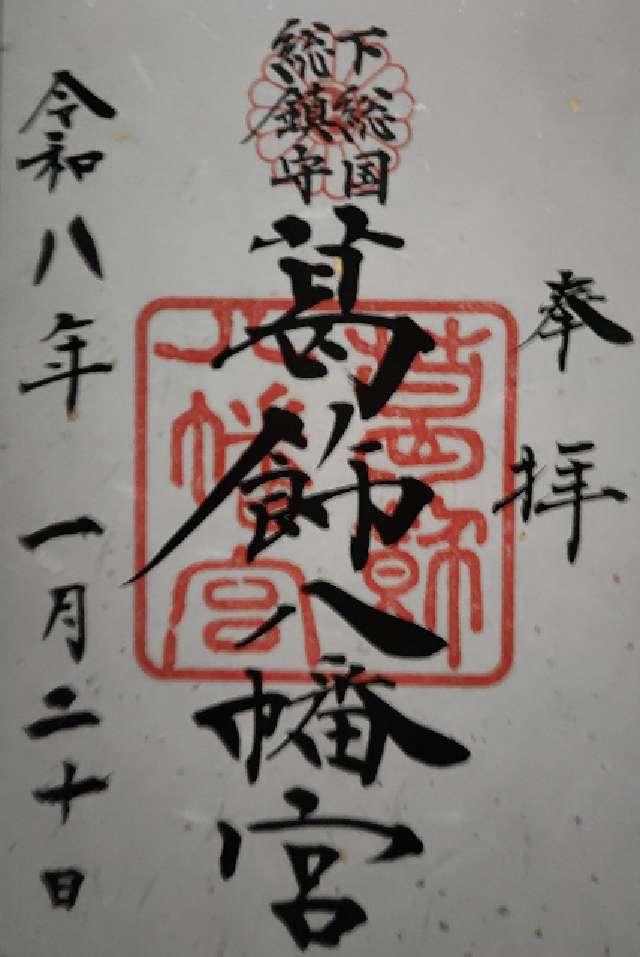 奉拝
下総国
総鎮守
葛飾八幡宮
葛飾
八幡宮
令和八年 一月二十日